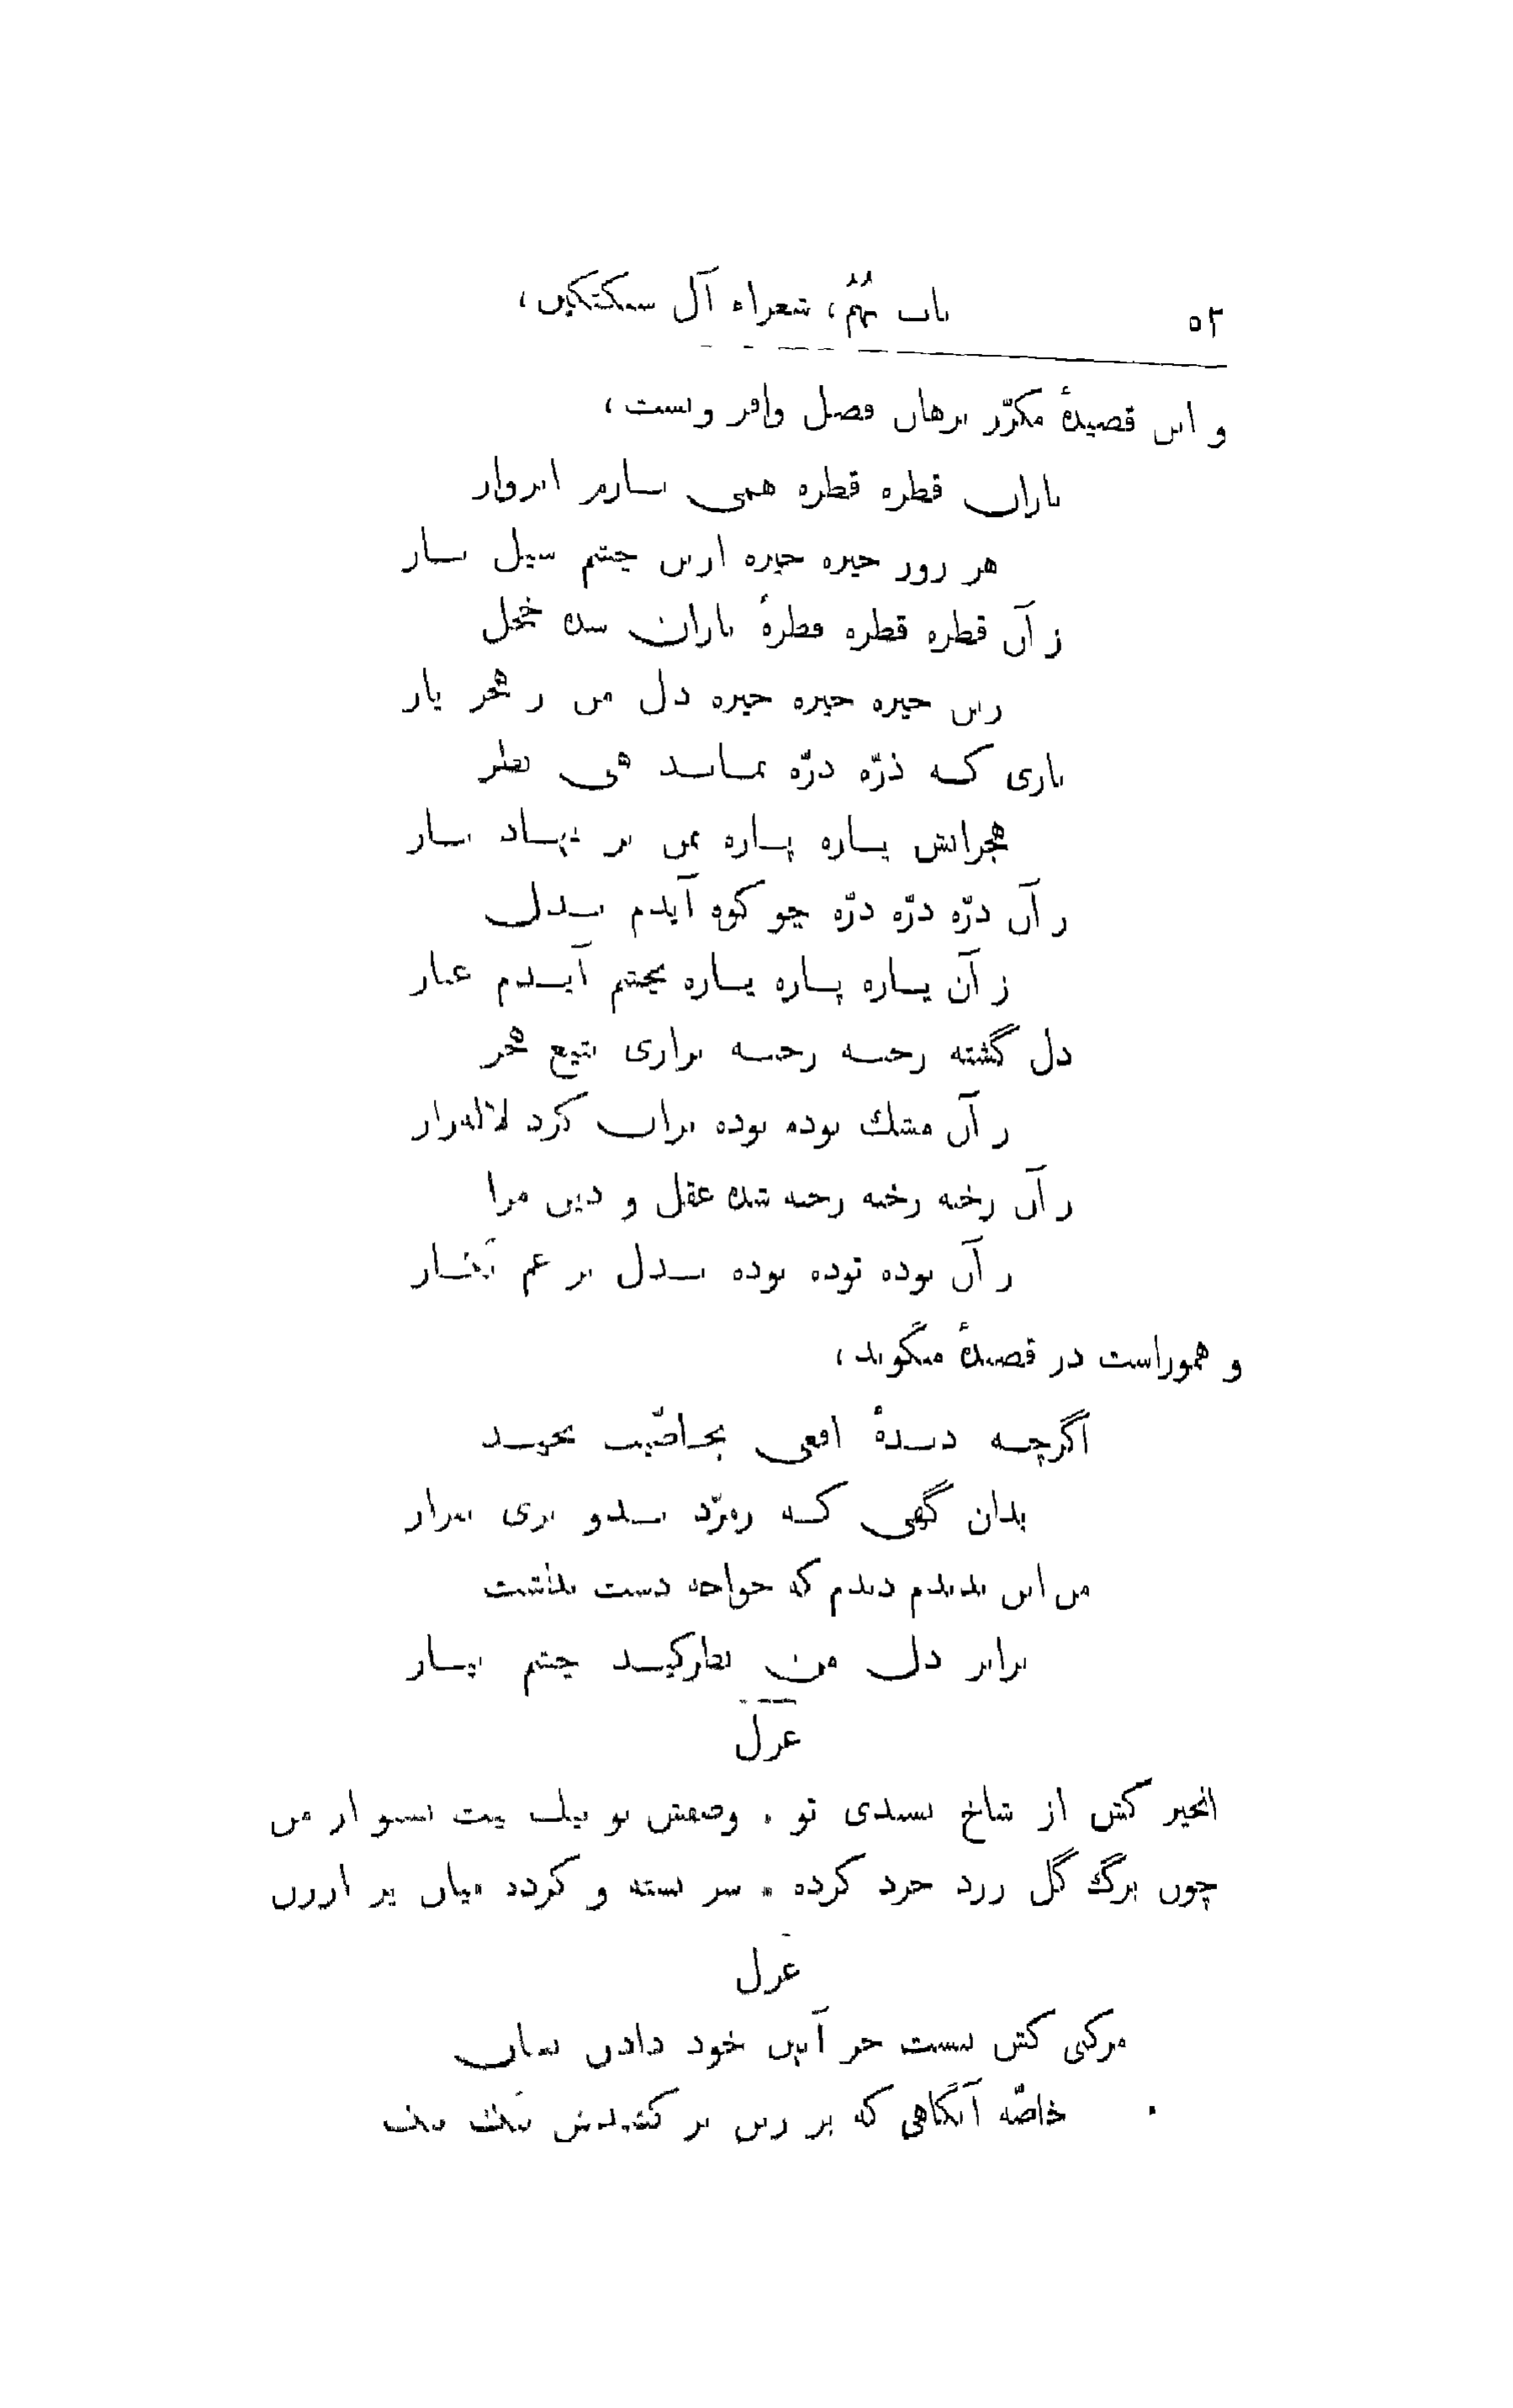 ٥٢ باب نهُمُ، شعراء آل سبکتکین،
و این قصیدهٔ مکرّر برهان فضل وافر ویست،
باران قطره قطره همی بارم ابروار
هر روز خیره خیره ازین چشم سیل بار
ز آن قطره قطره قطرهٔ باران شده خجل
زین خیره خیره خیره دل من ز هجر یار
یاری که ذرّه ذرّه نماید همی نظر
هجرانش پاره پاره بمن بر نهاد بار
ز آن ذرّه ذرّه ذرّه چو کوه آیدم بدل
ز آن پاره پاره پاره بچشم آیدم غبار
دل گشته رخنه رخنه بزاری بتیغ هجر
ز آن مشك توده توده بر آن گرد لاله‌زار
ز آن رخنه رخنه رخنه شده عقل و دین مرا
ز آن توده توده توده بدل بر غم نگار
و هموراست در قصیدهٔ میگوید،
اگرچه دیدهٔ افعی بخاصّیت بجهد
بدان گهی که زمرّد بدو بری بفراز
من این ندیدم دیدم که خواجه دست بداشت
برابر دل من بطرکید چشم نیاز
غزل
انجیر کش از شاخ بسدی تو ٭ وصفش تو بیك بیت بشنو از من
چون برگ گل زرد خرد کرده ٭ سر بسته و کرده میان پر ارزن
غزل
مرکبی کش نیست جز آیین خود دادن
خاصّه آنگاهی که بر زین بر کشیدش تنگ